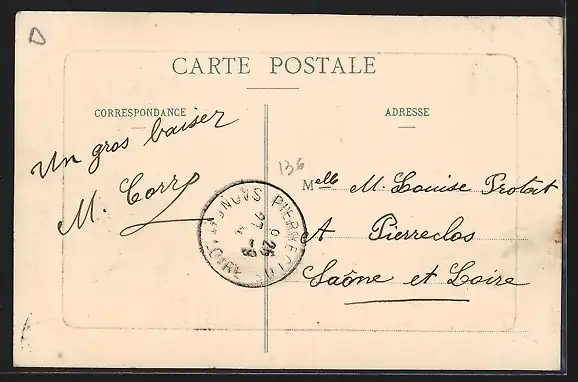 D
CARTE POSTALE
CORRESPONDANCE
ADRESSE
Un gros baiser
M. Corre
136
Melle M. Louise Protat
A Pierreclos
Saône et Loire
PIERRECLOS
SAONE ET LOIRE